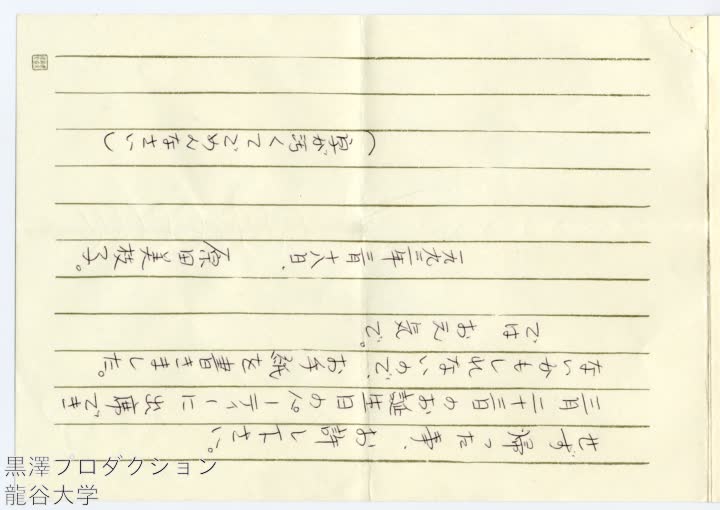 せず帰った事、お許し下さい。
三月二十三日のお誕生日のパーティーに出席でき
ないかもしれないので、お手紙を書きました。
では お元気で。
一九九二年 三月十八日、 原田美枝子。
(字が汚くてごめんなさい)
黒澤プロダクション
龍谷大学